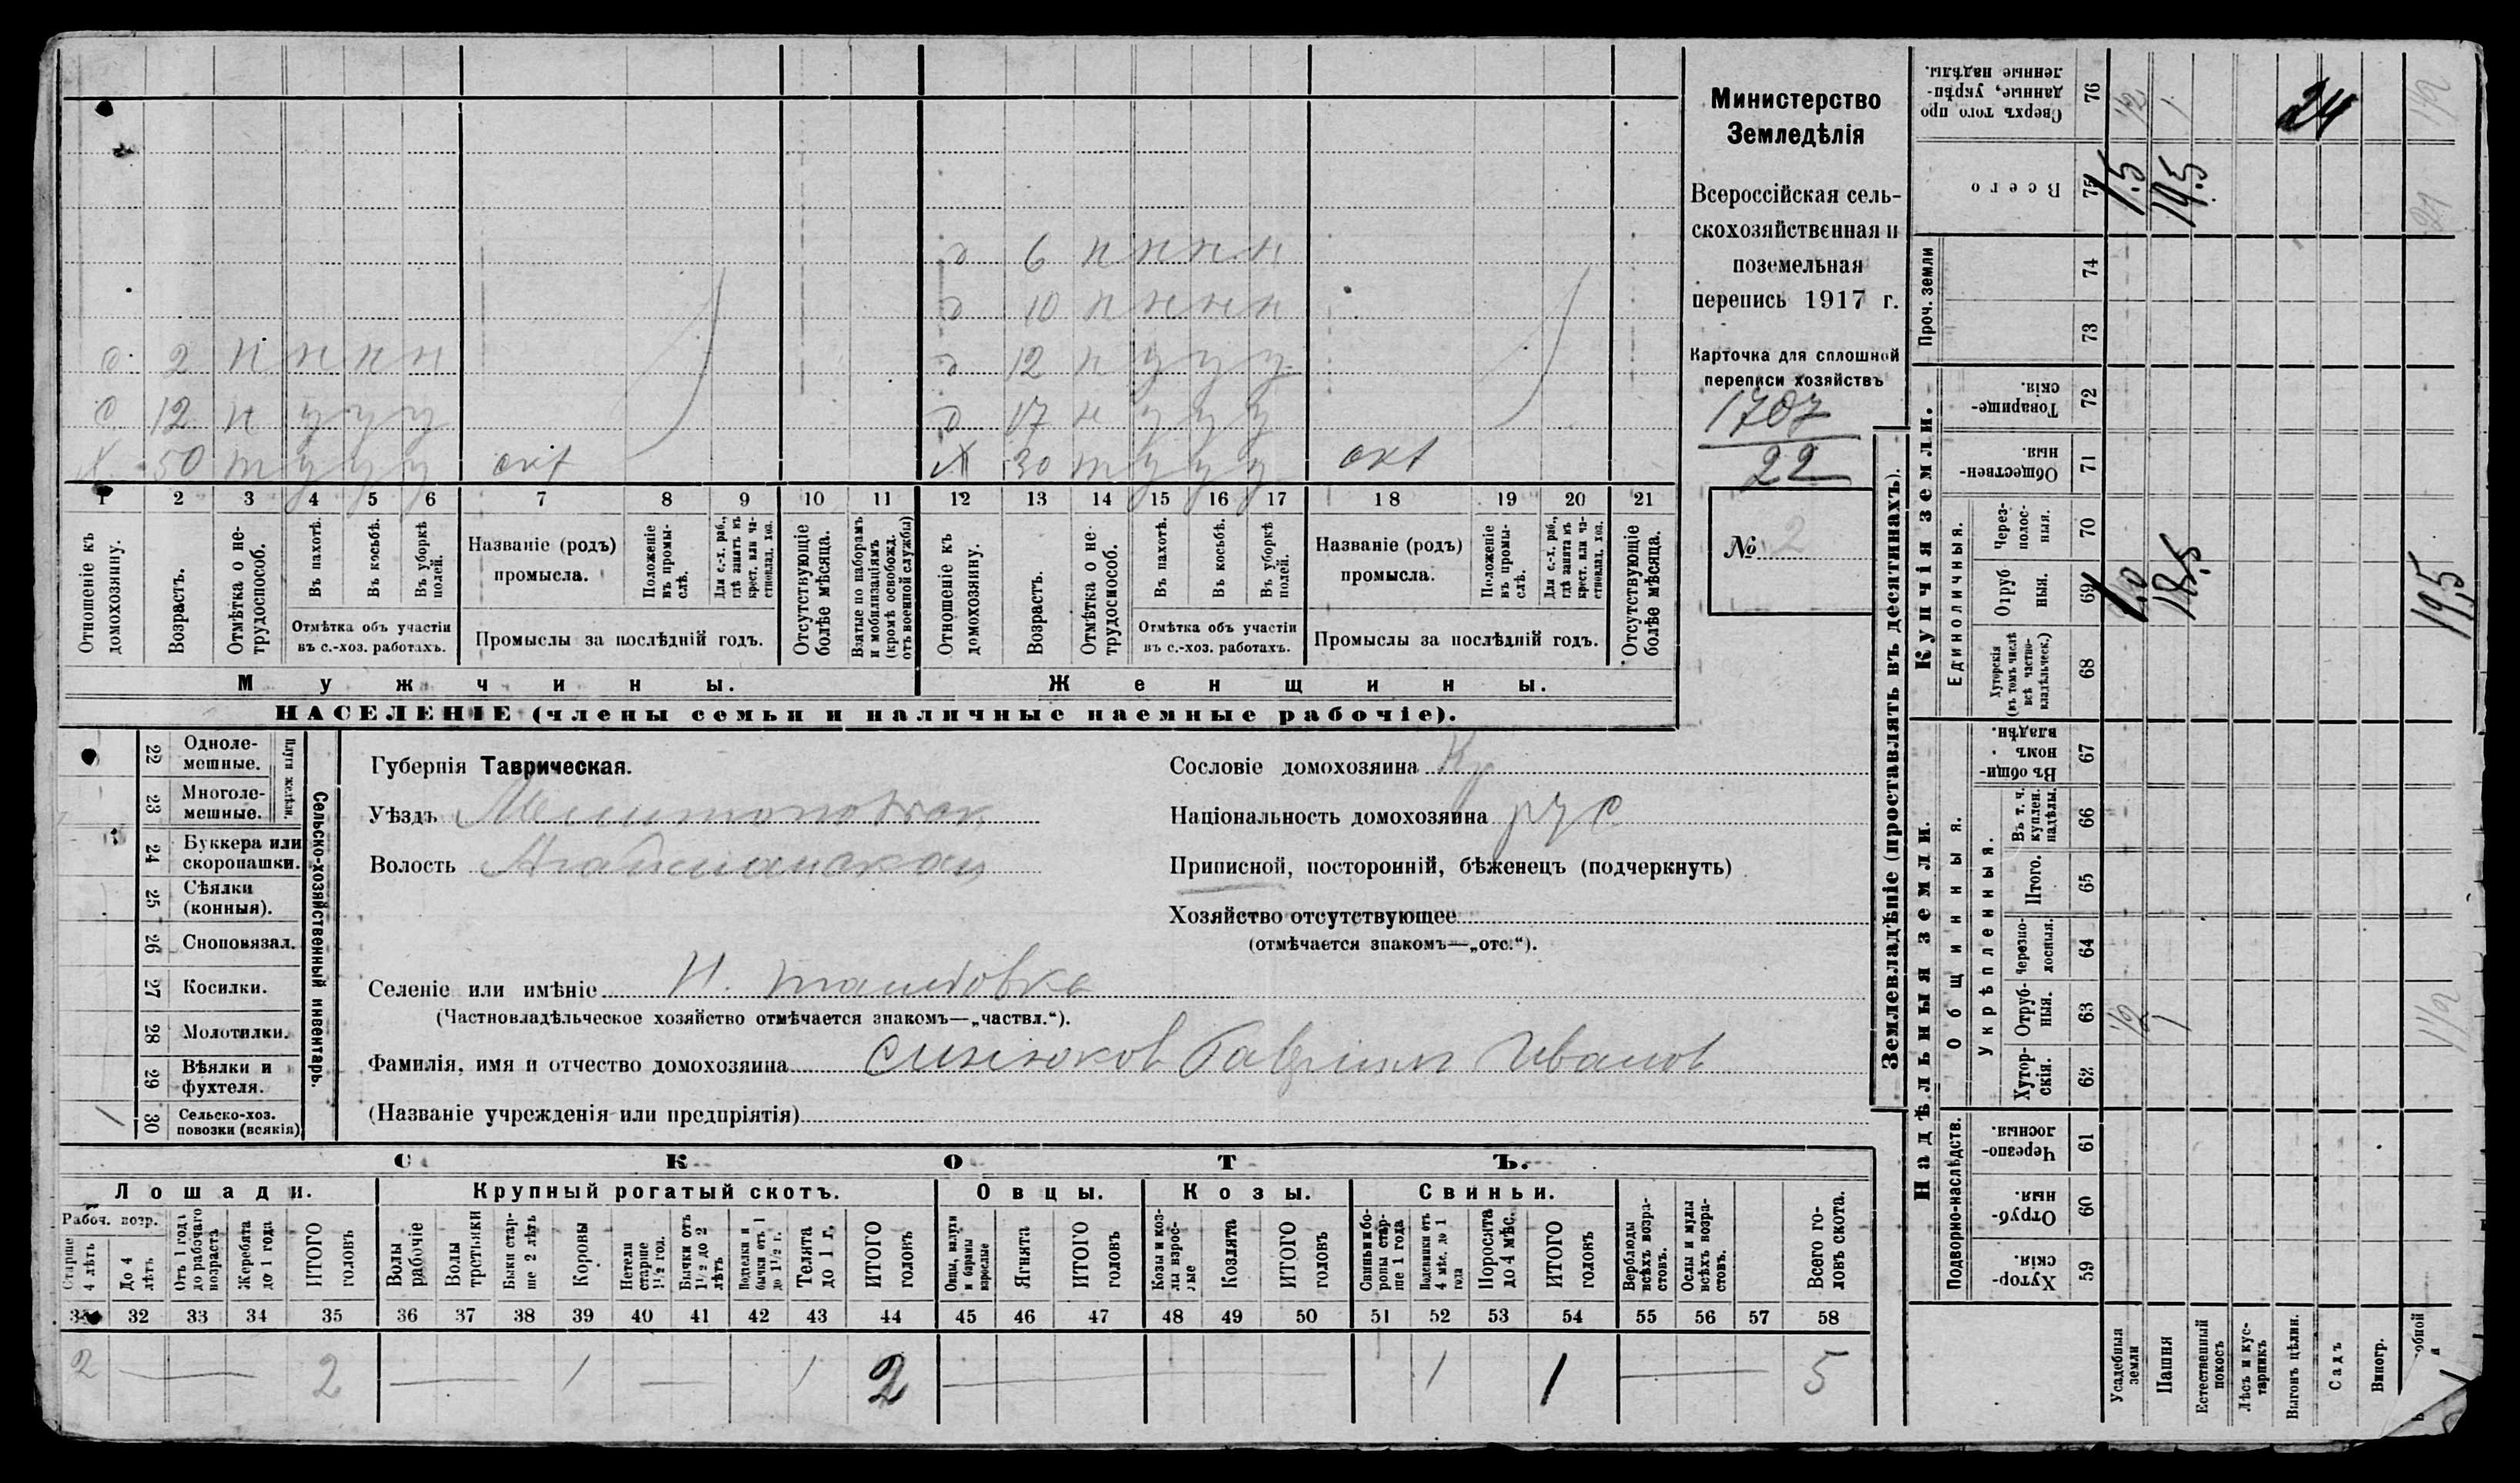 Министерство
Земледѣлія
Всероссійская сель-
скохозяйственная и
поземельная
перепись 1917 г.
Карточка для сплошной
переписи хозяйствъ
1707
22
№ 2
д 6 н н н н
д 10 н н н н
с 2 н н н н
д 12 н у у у
с 12 н у у у
д 17 н у у у
х 50 т у у у
х 30 т у у у
1 2 3 4 5 6 7 8 9 10 11 12 13 14 15 16 17 18 19 20 21
Отношеніе къ домохозяину.
Возрастъ.
Отмѣтка о не-трудоспособ.
Въ пахотѣ.
Въ косьбѣ.
Въ уборкѣ полей.
Отмѣтка объ участіи
въ с.-хоз. работахъ.
Названіе (родъ)
промысла.
Положеніе въ промы-слѣ.
Для с.-х. раб., гдѣ занятъ въ крест. или ча-стновлад. хоз.
Промыслы за послѣдній годъ.
Отсутствующіе болѣе мѣсяца.
Взятые по наборамъ и мобилизаціямъ (кромѣ освобожд. отъ военной службы)
Отношеніе къ домохозяину.
Возрастъ.
Отмѣтка о не-трудоспособ.
Въ пахотѣ.
Въ косьбѣ.
Въ уборкѣ полей.
Отмѣтка объ участіи
въ с.-хоз. работахъ.
Названіе (родъ)
промысла.
Положеніе въ промы-слѣ.
Для с.-х. раб., гдѣ занята въ крест. или ча-стновлад. хоз.
Промыслы за послѣдній годъ.
Отсутствующіе болѣе мѣсяца.
Мужчины.
Женщины.
НАСЕЛЕНІЕ (члены семьи и наличные наемные рабочіе).
22 Одноле-мешные.
23 Многоле-мешные.
Плуги желѣзн.
24 Буккера или скоропашки.
25 Сѣялки (конныя).
26 Сноповязал.
27 Косилки.
28 Молотилки.
29 Вѣялки и фухтеля.
1 30 Сельско-хоз. повозки (всякія)
Сельско-хозяйственный инвентарь.
Губернія Таврическая.
Уѣздъ
Волость
Селеніе или имѣніе Н.
(Частновладѣльческое хозяйство отмѣчается знакомъ—„частвл.“).
Фамилія, имя и отчество домохозяина Синюков Гавріил Иванов
(Названіе учрежденія или предпріятія)
Сословіе домохозяина Кр
Національность домохозяина рус
Приписной, посторонній, бѣженецъ (подчеркнуть)
Хозяйство отсутствующее
(отмѣчается знакомъ—„отс.“).
СКОТЪ.
Лошади.
Крупный рогатый скотъ.
Овцы.
Козы.
Свиньи.
Рабоч. возр.
Старше 4 лѣтъ
До 4 лѣтъ
Отъ 1 года до рабочаго возраста
Жеребата до 1 года
ИТОГО головъ
Волы рабочіе
Волы третьяки
Быки стар-ше 2 лѣтъ
Коровы
Нетели старше 1½ год.
Бычки отъ 1½ до 2 лѣтъ
Водтелки и бычки отъ 1 до 1½ г.
Телята до 1 г.
ИТОГО головъ
Овцы, валухи и бараны взрослые
Ягнята
ИТОГО головъ
Козы и коз-лы взрос-лые
Козлята
ИТОГО головъ
Свиньи и бо-ровы стар-ше 1 года
Подсвинки отъ 4 мѣс. до 1 года
Поросята до 4 мѣс.
ИТОГО головъ
Верблюды всѣхъ возра-стовъ.
Ослы и мулы всѣхъ возра-стовъ.
Всего го-ловъ скота.
31 32 33 34 35 36 37 38 39 40 41 42 43 44 45 46 47 48 49 50 51 52 53 54 55 56 57 58
2 — — 2 — 1 — 1 2 — 1 1 — 5
Землевладѣніе (проставлять въ десятинахъ).
Надѣльныя земли.
Купчія земли.
Проч. земли
Подворно-наслѣдств.
Общинныя.
Укрѣпленныя.
Единоличныя.
Хутор-скія. 59
Отруб-ныя. 60
Черезпо-лосныя. 61
Хутор-скія. 62
Отруб-ныя. 63
Черезпо-лосныя. 64
Итого. 65
Въ т. ч. куплен. надѣлы. 66
Въ общи-номъ владѣн. 67
Хуторскія (въ томъ числѣ всѣ частно-владѣльческ.) 68
Отруб ныя. 69
Через-полос-ныя. 70
Обществен-ныя. 71
Товарище-скія. 72
73
74
Всего 75
Сверхъ того про данные, укрѣп-ленные надѣлы. 76
Усадебныя земли
Пашня
Естественный покосъ
Лѣсъ и кус-тарникъ
Выгонъ цѣлин.
Садъ
Виногр.
1/2 1 1 1/2
1,0 18,5 19,5
1,5 19,5 21
24